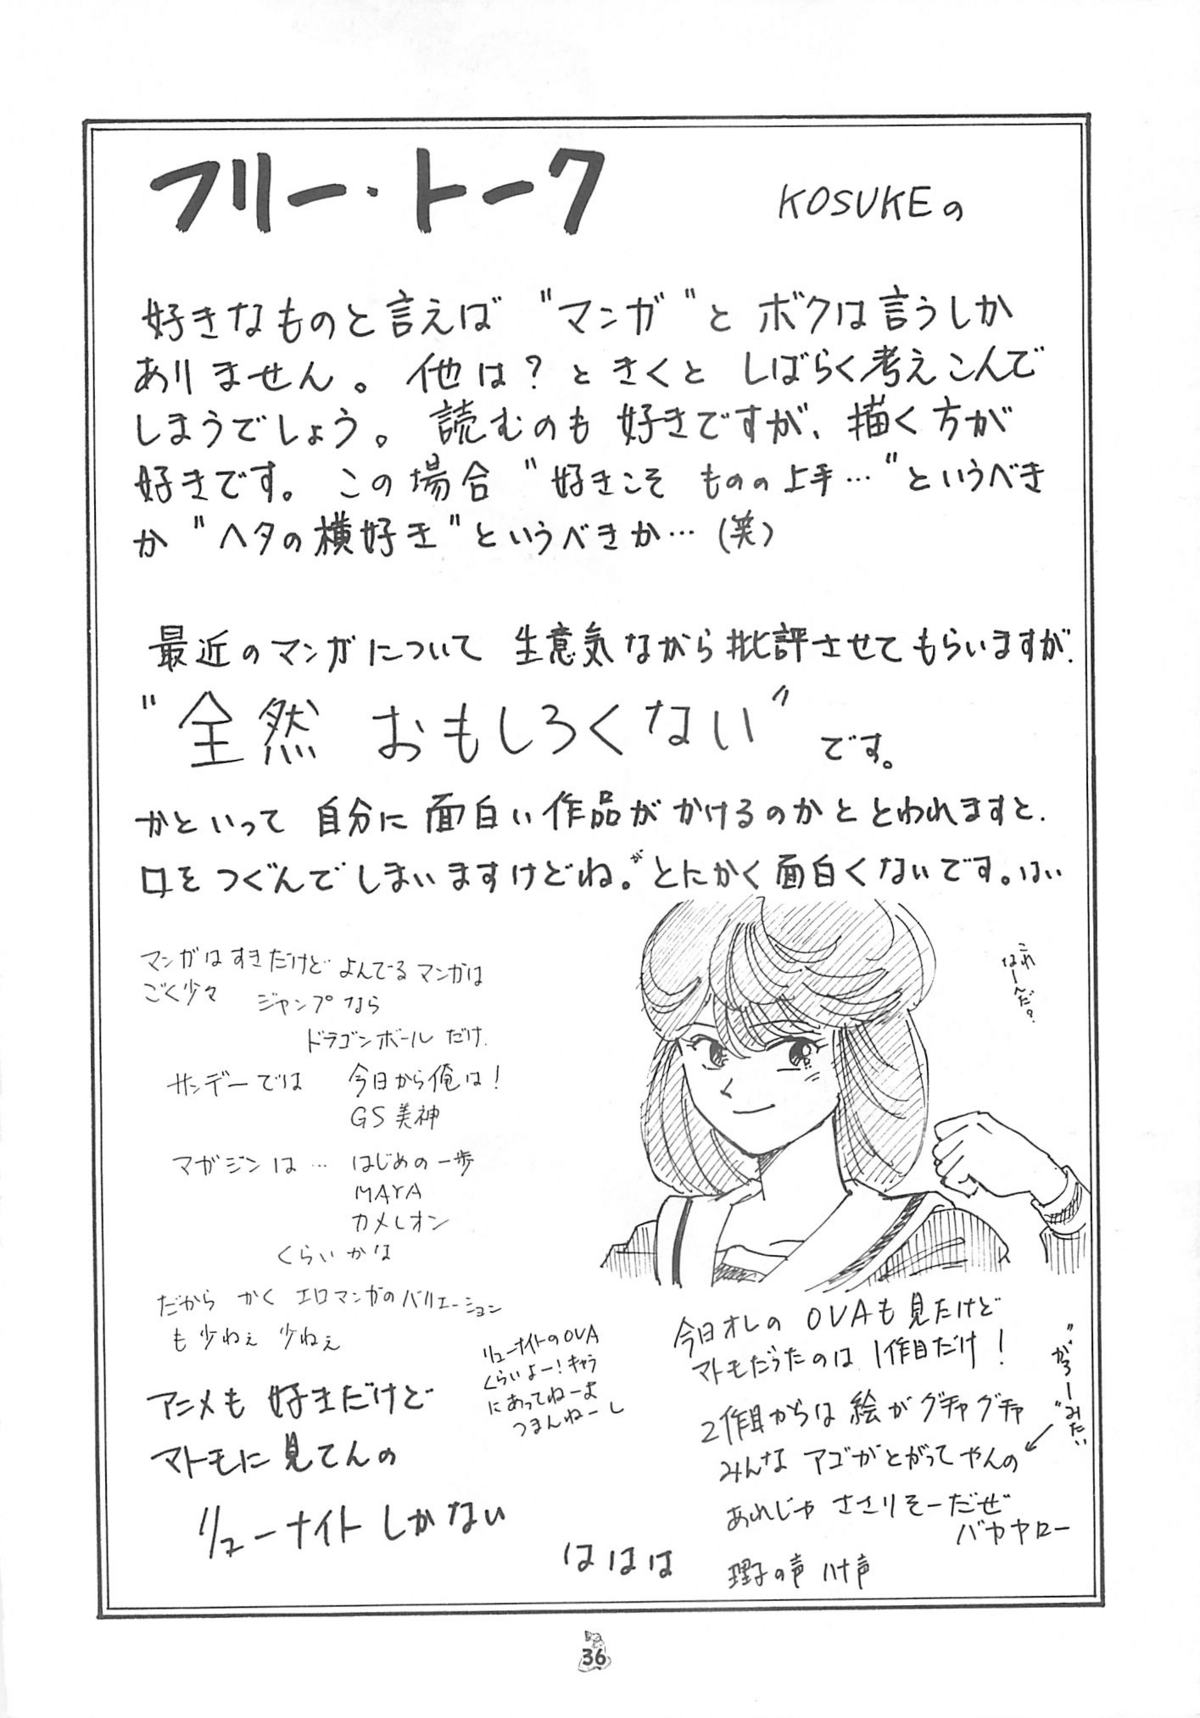 フリー・トーク
KOSUKEの
好きなものと言えば"マンガ"とボクは言うしか
ありません。他は?ときくとしばらく考えこんで
しまうでしょう。読むのも好きですが、描く方が
好きです。この場合"好きこそものの上手…"というべき
か"ヘタの横好き"というべきか…(笑)
最近のマンガについて生意気ながら批評させてもらいますが、
"全然おもしろくない"です。
かといって自分に面白い作品がかけるのかととわれますと、
口をつぐんでしまいますけどね。がとにかく面白くないです。はい
マンガはすきだけどよんでるマンガは
ごく少々 ジャンプなら
ドラゴンボールだけ
サンデーでは 今日から俺は!
GS美神
マガジンは… はじめの一歩
MAYA
カメレオン
くらいかな
だからかくエロマンガのバリエーション
も少ねぇ少ねぇ
アニメも好きだけど
マトモに見てんの
リューナイトしかない
ははは
リューナイトのOVA
くらいよー!キャラ
にあってねーよ
つまんねーし
これ
はーんだ?
今日オレのOVAも見たけど
マトモだったのは1作目だけ!
2作目からは絵がグチャグチャ
みんなアゴがとがってやんの
"がろーみたい"
あれじゃささりそーだぜ
バカヤロー
理子の声ハナ声
36